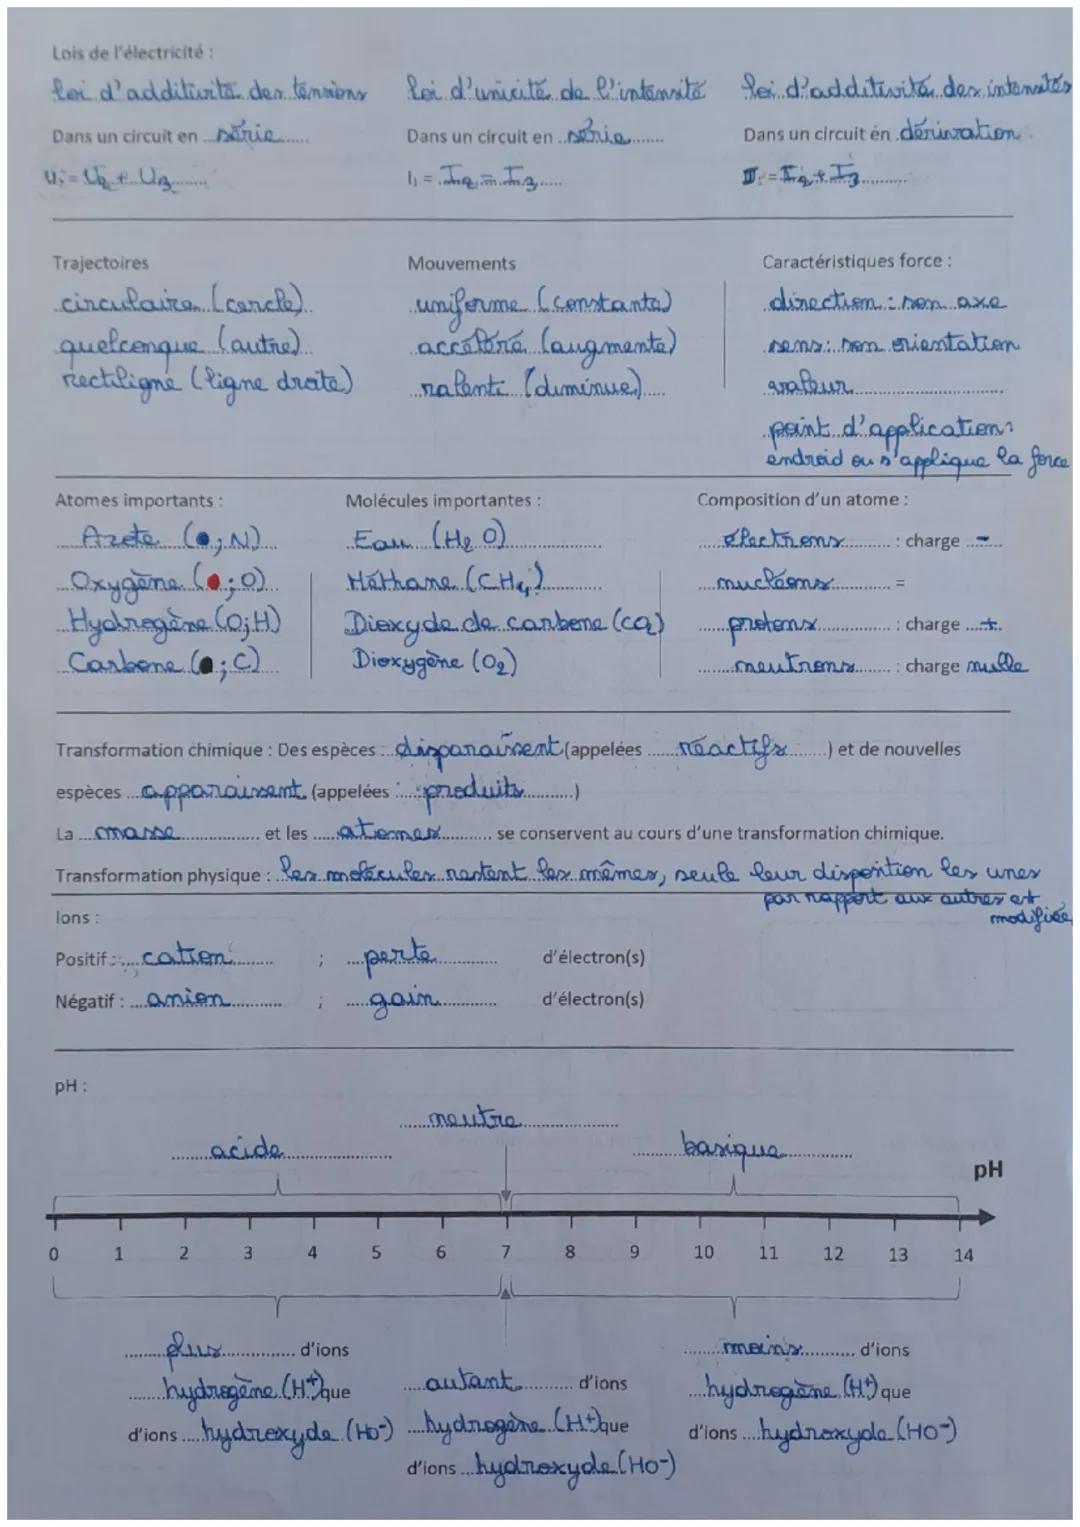 Lois de l'électricité :
loi d'additivité des tensions loi d'unicité de l'intensité loi d'additivité des intensités
Dans un circuit en série Dans un circuit en série Dans un circuit en dérivation
U₁ = U₂ + U₃ I₁ = I₂ = I₃ I₁ = I₂ + I₃
Trajectoires Mouvements Caractéristiques force :
circulaire (cercle) uniforme (constante) direction : son axe
quelconque (autre) accéléré (augmente) sens : son orientation
rectiligne (ligne droite) ralenti (diminue) valeur
point d'application :
endroid ou s'applique la force
Atomes importants : Molécules importantes : Composition d'un atome :
Azote (●; N) Eau (H₂O) électrons : charge -
Oxygène (●; O) Méthane (CH₄) nucléons =
Hydrogène (O; H) Dioxyde de carbone (CO₂) protons : charge +
Carbone (●; C) Dioxygène (O₂) neutrons : charge nulle
Transformation chimique : Des espèces : disparaissent (appelées réactifs) et de nouvelles
espèces apparaissent (appelées : produits)
La masse et les atomes se conservent au cours d'une transformation chimique.
Transformation physique : les molécules restent les mêmes, seule leur disposition les unes
par rapport aux autres est
modifiée
Ions :
Positif : cation ; perte d'électron(s)
Négatif : anion ; gain d'électron(s)
pH :
neutre
acide basique
pH
0 1 2 3 4 5 6 7 8 9 10 11 12 13 14
plus d'ions moins d'ions
hydrogène (H⁺) que autant d'ions hydrogène (H⁺) que
d'ions hydroxyde (HO⁻) hydrogène (H⁺) que d'ions hydroxyde (HO⁻)
d'ions hydroxyde (HO⁻)